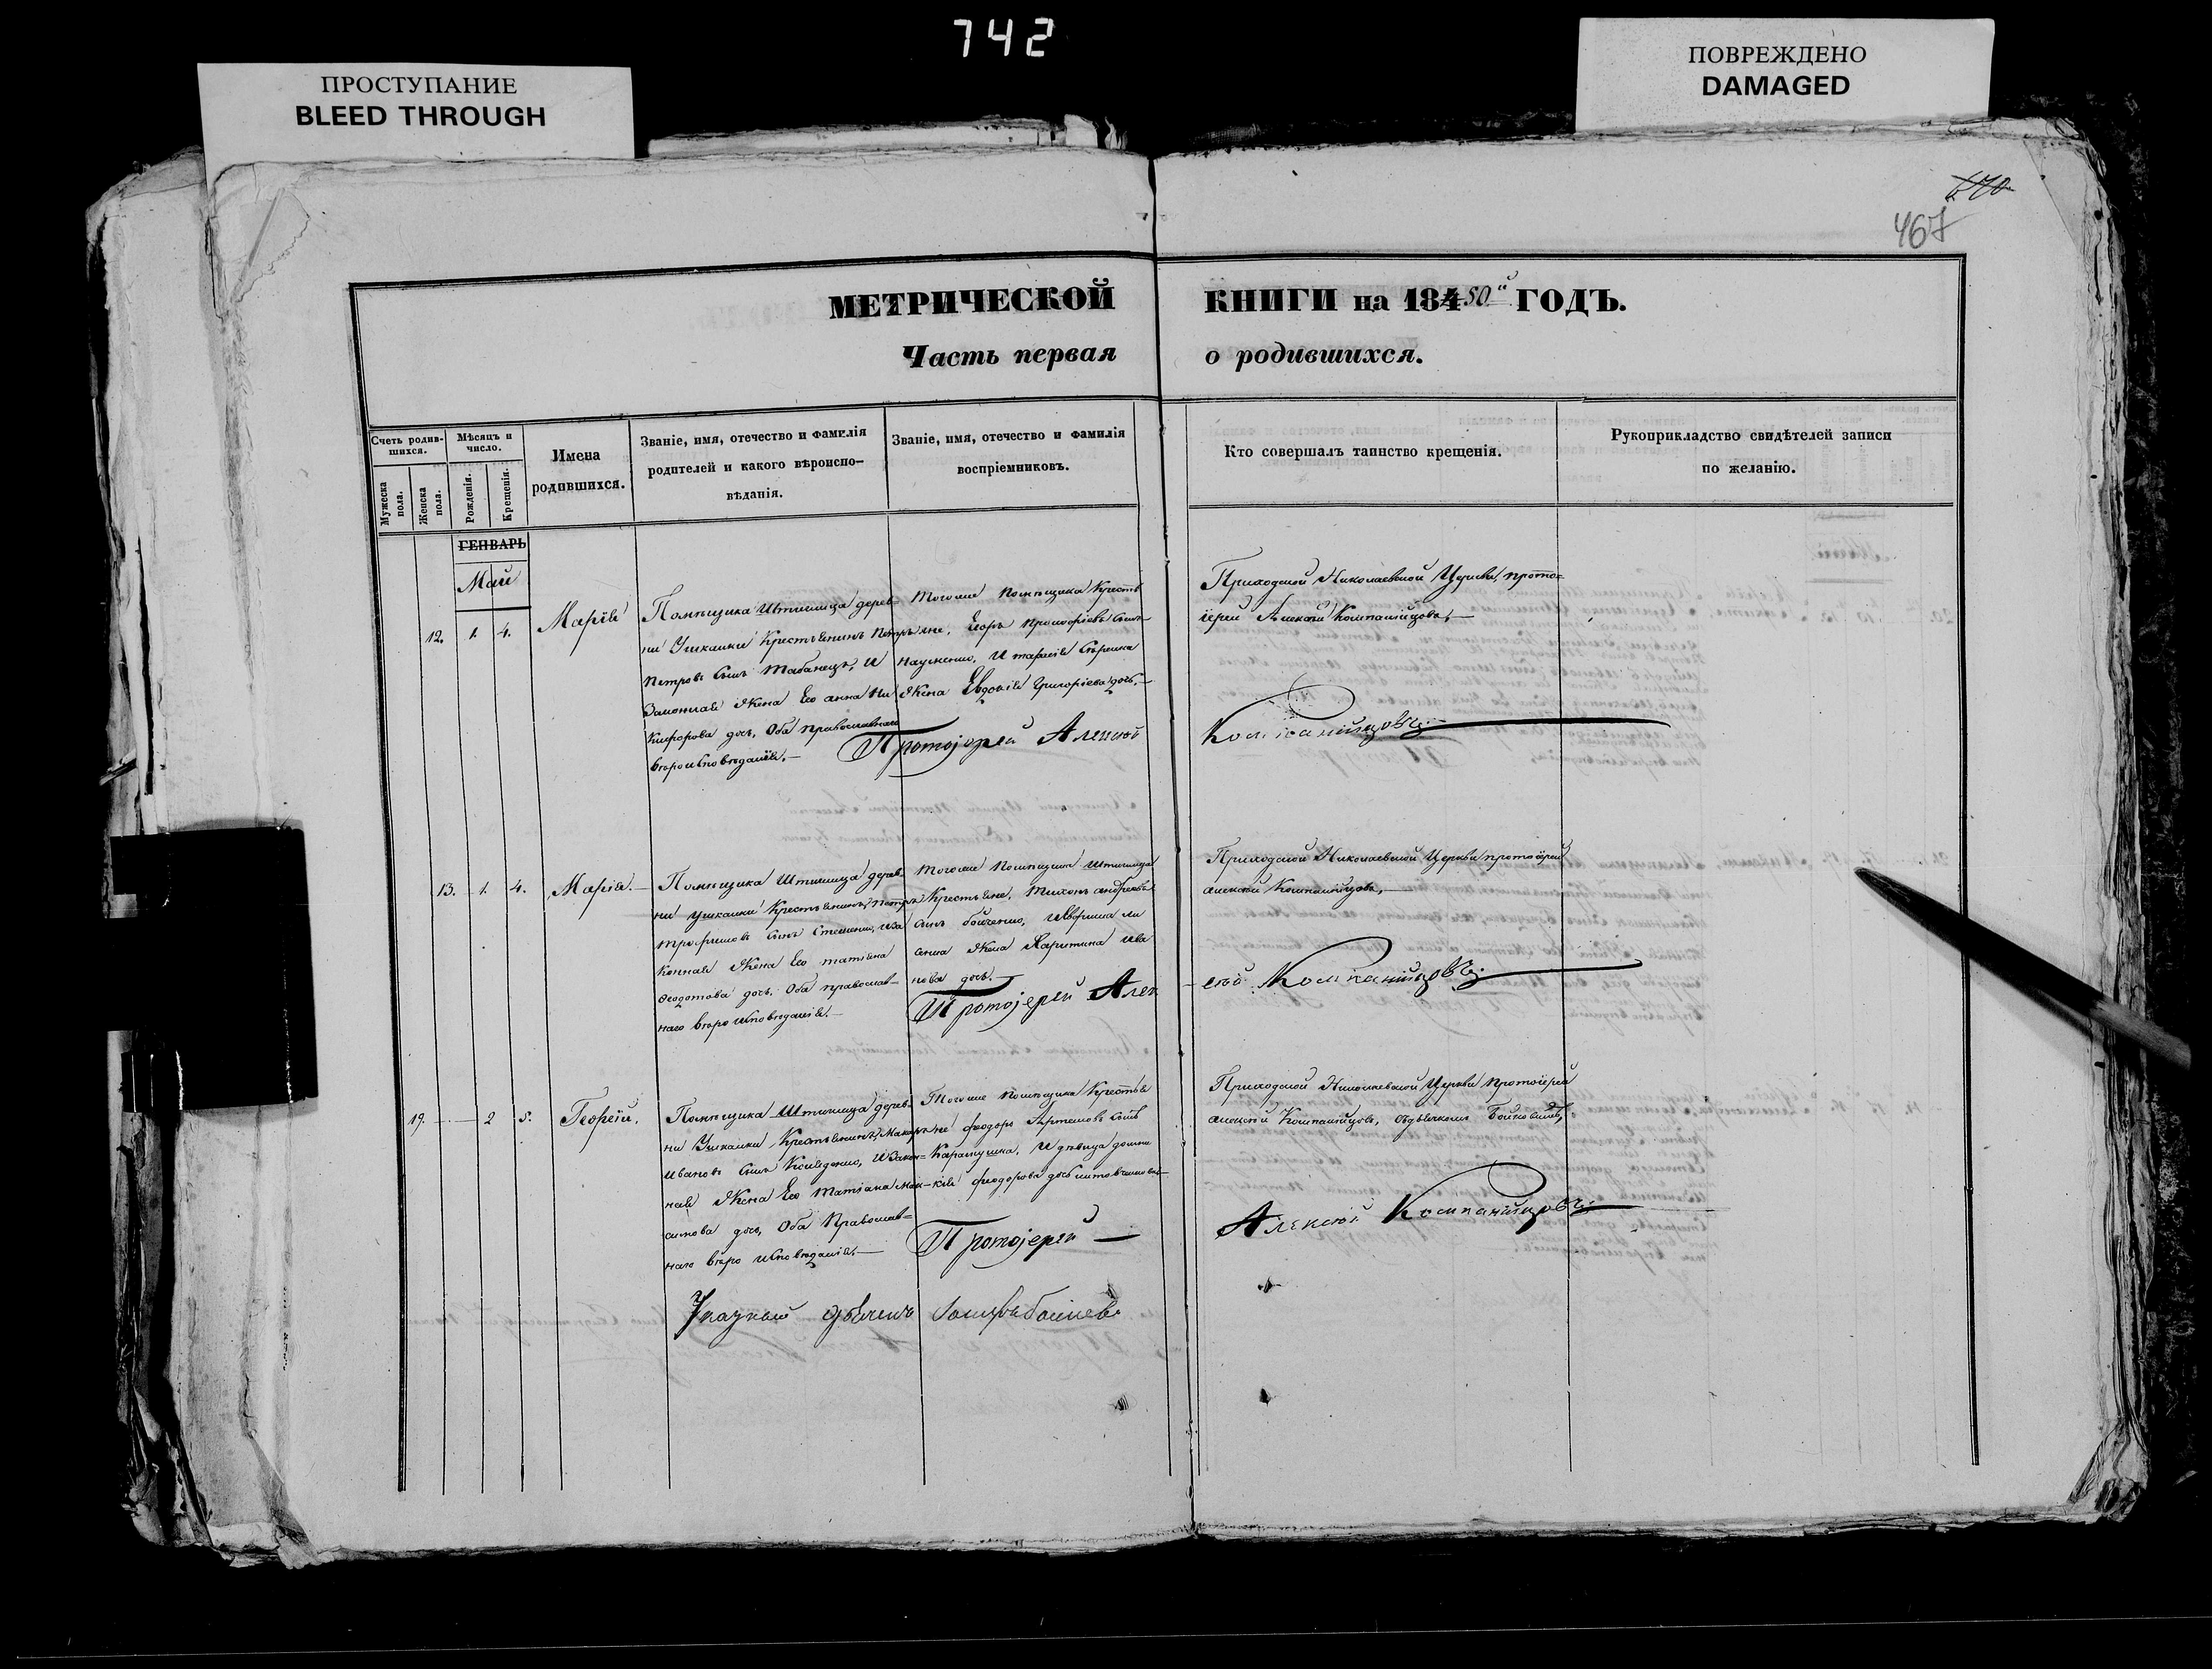 742
ПРОСТУПАНИЕ
BLEED THROUGH
ПОВРЕЖДЕНО
DAMAGED
467
МЕТРИЧЕСКОЙ КНИГИ на 18450й ГОДЪ.
Часть первая о родившихся.
Счетъ родив-
шихся.
Мужеска
пола.
Женска
пола.
Мѣсяцъ и
число.
Рожденія.
Крещенія.
Имена
родившихся.
Званіе, имя, отечество и фамилія
родителей и какого вѣроиспо-
вѣданія.
Званіе, имя, отечество и фамилія
воспріемниковъ.
Кто совершалъ таинство крещенія.
Рукоприкладство свидѣтелей записи
по желанію.
ГЕНВАРЬ
Май
12. 1. 4. Марія
Помѣщика деров-
ни Ушкалки Крестьянинъ Петръ
Петровъ сынъ Табанецъ, и
Законная жена Его анна Ни
кифорова дочь, Оба православнаго
вѣроисповѣданія.—
Тогоже помѣщика Кресть
яне, Егоръ Прокофіевъ сынъ
Науменко, и
жена Евдокія Григоріева дочь.—
Приходской Николаевской Церкви, прото-
іерей Алексѣй Компанійцовъ,—
Протоіерей Алексѣй Компанійцовъ
13. 1. 4. Марія.—
Помѣщика дерев-
ни Ушкалки Крестьянинъ, Петръ
Трофимовъ сынъ и за
конная жена Его татіана
Федотова дочь, Оба православ-
наго вѣро исповѣданія.—
Тогоже помѣщика
Крестьяне, Тихонъ андреевъ
сынъ бойченко,
жена Харитина Ива
нова дочь.—
Приходской Николаевской Церкви протоіерей
алексѣй Компанійцовъ,—
Протоіерей Алек
сѣй Компанійцовъ.
19. 2 5. Георгій.
Помѣщика дерев-
ни Ушкалки Крестьянинъ, Макаръ
Ивановъ сынъ и закон-
ная жена Его Татіана Мак-
симова дочь, Оба Православ-
наго вѣро исповѣданія.—
Тогоже помѣщика Крестья
не феодоръ Артемовъ сынъ
и дѣвица
кія феодорова дочь
Приходской Николаевской Церкви протоіерей
алексѣй Компанійцовъ, съ дьячкомъ
Протоіерей — Алексѣй Компанійцовъ
дьячекъ